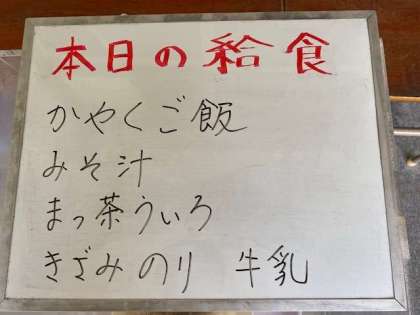 本日の給食
かやくご飯
みそ汁
まっ茶ういろ
きざみのり 牛乳